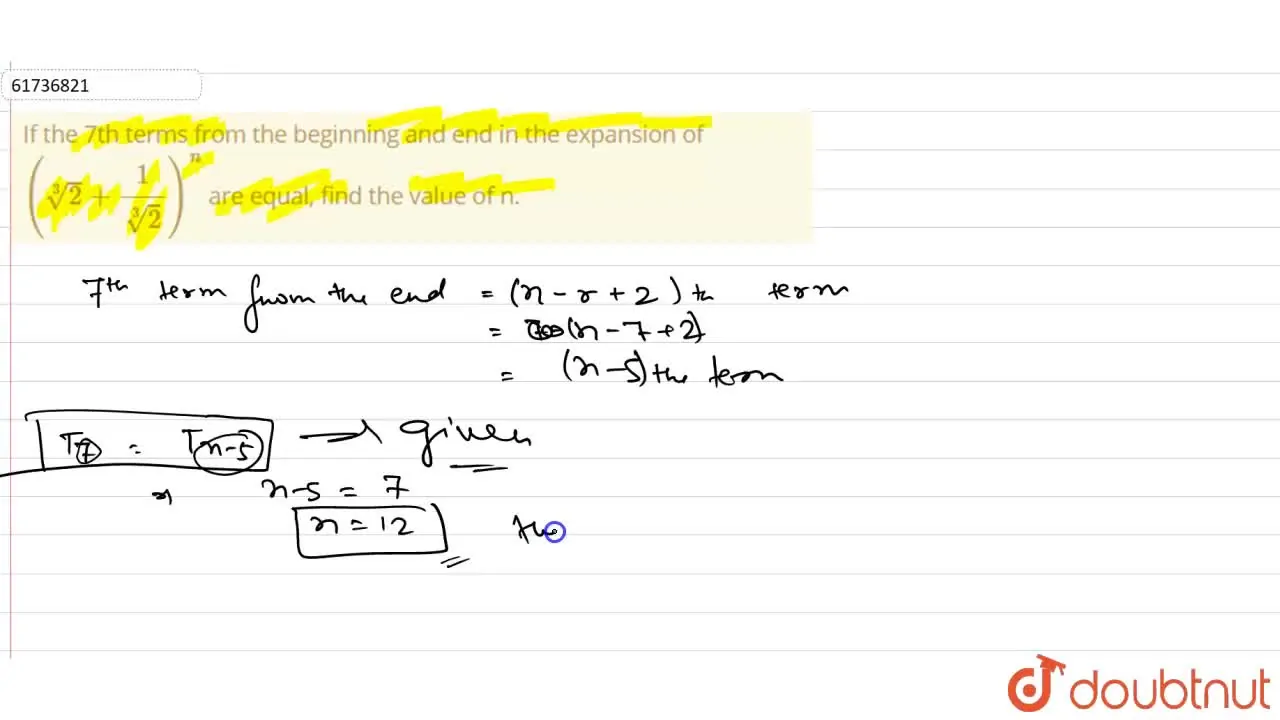 61736821
If the 7th terms from the beginning and end in the expansion of
(∛2 + 1/∛2)ⁿ are equal, find the value of n.
7th term from the end = (n - r + 2) th term
= (n - 7 + 2)
= (n - 5) the term
T7 = Tn-5 → given
n-5 = 7
n = 12
doubtnut